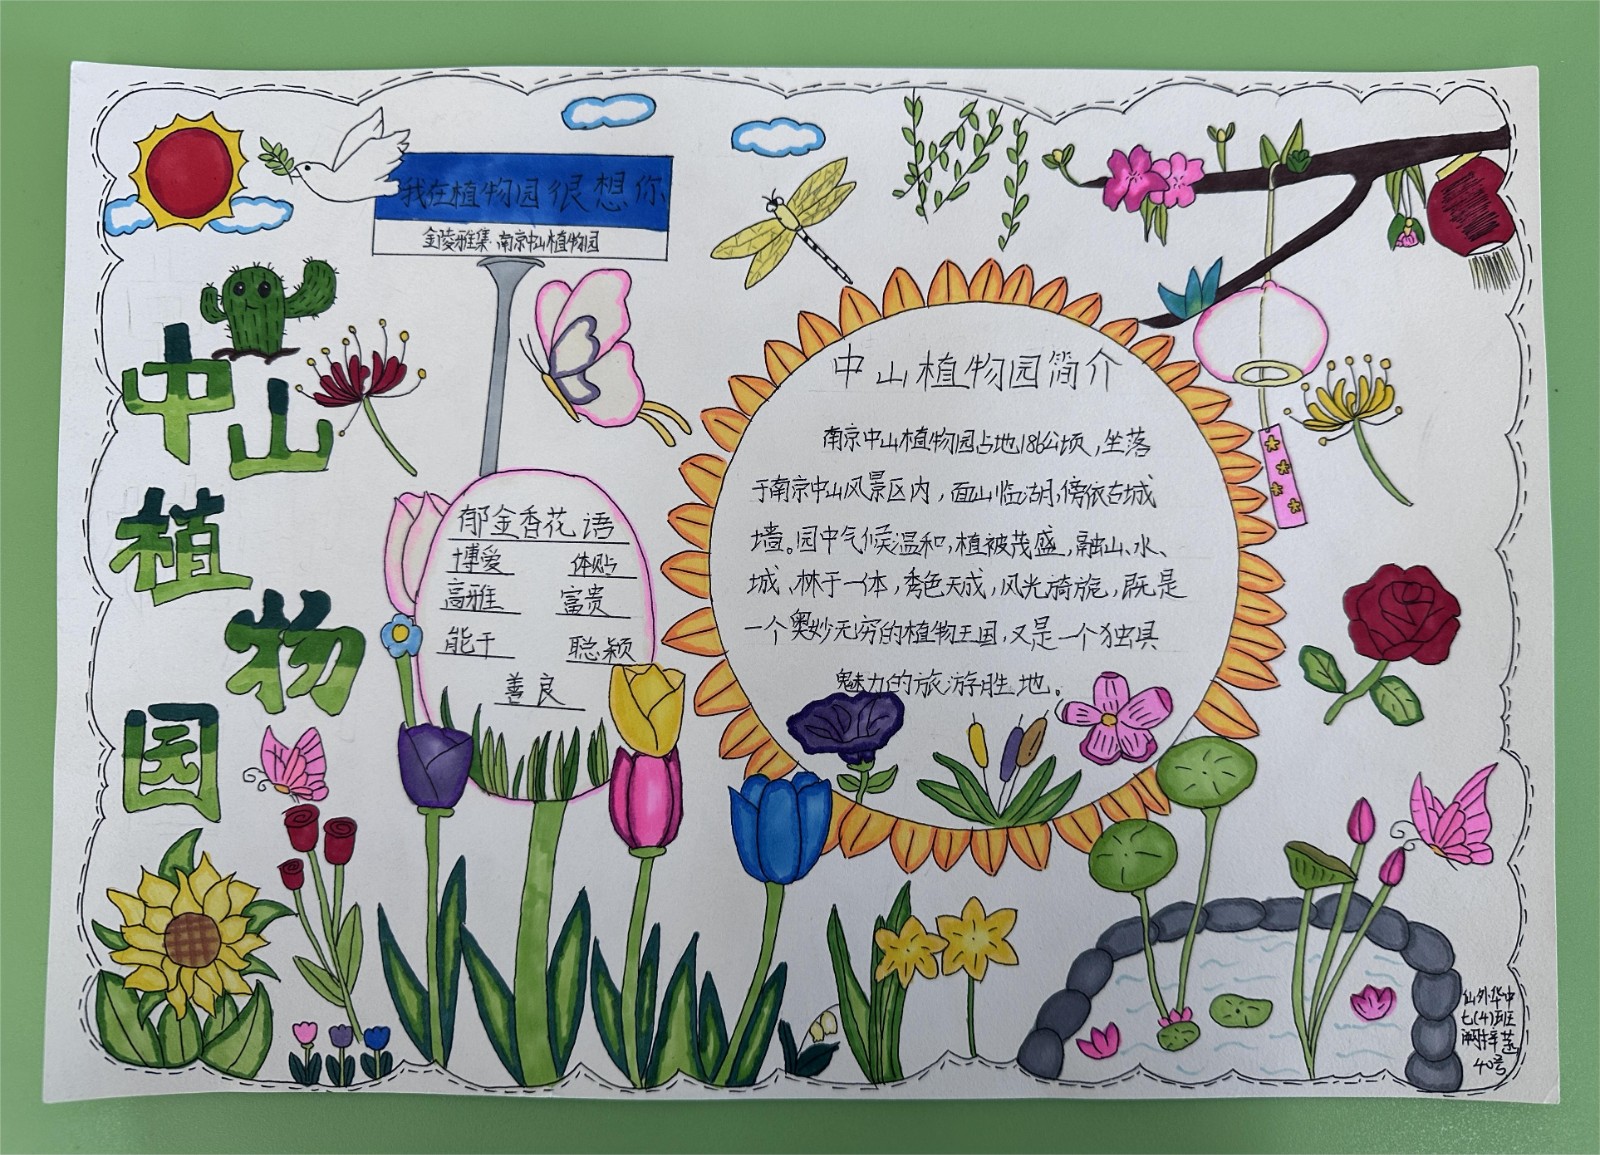 我在植物园很想你
金陵雅集·南京中山植物园
中山植物园
郁金香花语
博爱 体贴
高雅 富贵
能干 聪颖
善良
中山植物园简介
南京中山植物园占地186公顷,坐落
于南京中山风景区内,面山临湖,傍依古城
墙。园中气候温和,植被茂盛,融山、水、
城、林于一体,秀色天成,风光旖旎,既是
一个奥妙无穷的植物王国,又是一个独具
魅力的旅游胜地。
仙外华中
七(4)班
40号